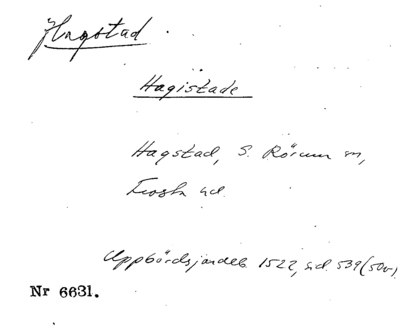 Hagstad
Hagistade
Hagstad, S. Rörum sn,
Frosta hd.
Uppbördsjordeb. 1522, sid. 539 (50v).
Nr 6631.